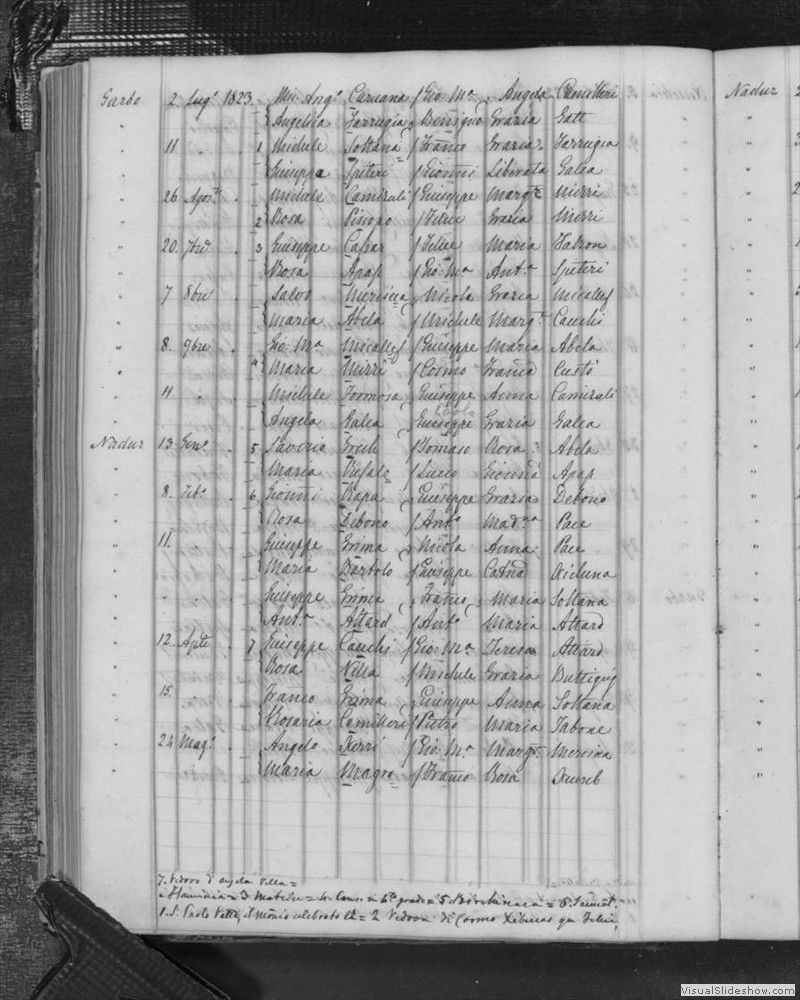 Garbo 2. Lugo 1823. Mic. Ango Caruana f Gio. Ma Angela Camilleri
Angelica Farrugia Benigno Grazia Gatt
" 11 " 1 Michele Soltana f Franco Grazia Farrugia
Giuseppa Spiteri f Gionni Liberata Galea
" 26 Agosto Michele Camirali f Giuseppe Margta Mizzi
" 2 Rosa Piscopo f Felice Grazia Mizzi
" 20. 7bre 3 Giuseppe Capar f Felice Maria Falzon
" Rosa Apap f Gio. Ma Anta Spiteri
" 7 8bre Salvo Mercieca Nicola Grazia Micallef
" Maria Abela f Michele Margta Cauchi
" 8. 9bre Gio. Ma Micallef f Giuseppe Maria Abela
" 4 Maria Mizzi f Cosmo Franca Custò
" 11 Michele Formosa Giuseppe Anna Camirali
" Angela Galea Giuseppe Grazia Galea
Nadur 13 Geno 5 Saverio Grech f Tomaso Rosa Abela
" Maria Refalo f Lucio Gionna Apap
" 8. Febo 6. Gionni Rapa Giuseppe Grazia Debono
" Rosa Debono f Anto Madna Pace
" 11. Giuseppe Grima Nicola Anna Pace
" Maria Bartolo f Giuseppe Catna Xicluna
" " Giuseppe Grima Franco Maria Soltana
" Anta Attard f Anto Maria Attard
" 12. Aple 7 Giuseppe Cauchi f Gio. Ma Teresa Attard
" Rosa Vella f Michele Grazia Buttigieg
" 15. Franco Grima Giuseppe Anna Soltana
" Rosaria Camilleri f Pietro Maria Tabone
" 24 Mago Angelo Ferri f Gio. Ma Margta Mercieca
" Maria Magro f Franco Rosa Xuereb
7. Vedovo d'Angela Vella =
= 3 = 4. Cons. in 4to grado = 5 = 6.
1. S. Paolo celebrato = 2 Vedova di Cosmo
Nadur
VisualSlideshow.com